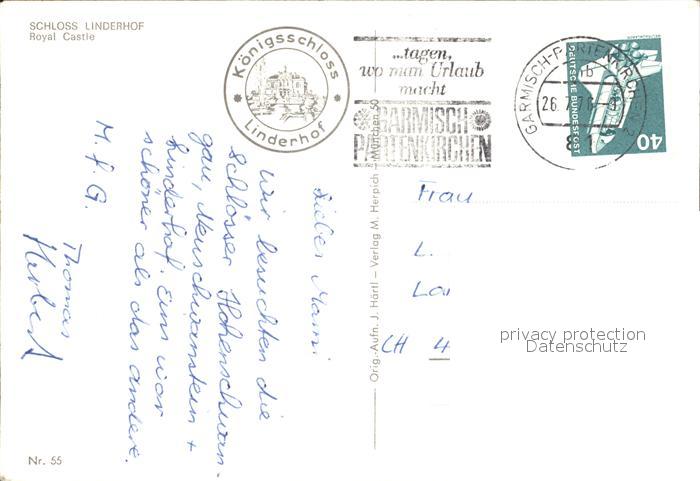 SCHLOSS LINDERHOF
Royal Castle
Königsschloss
Linderhof
...tagen,
wo man Urlaub
macht
GARMISCH
PARTENKIRCHEN
GARMISCH-PARTENKIRCHEN 2
26.7.76
DEUTSCHE BUNDESPOST
40
Liebes Mami
Wir besuchten die
Schlösser Hohenschwan-
gau, Neuschwanstein +
Linderhof. Eins war
schöner als das andere.
M. f. G.
Thomas
Herbert
Orig.-Aufn. J. Härtl – Verlag M. Herpich München 50
Frau
L.
CH 4
privacy protection
Datenschutz
Nr. 55